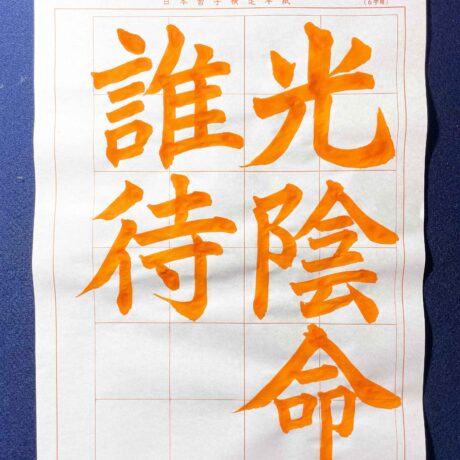 日本習字検定半紙
(6字用)
光陰命
誰待